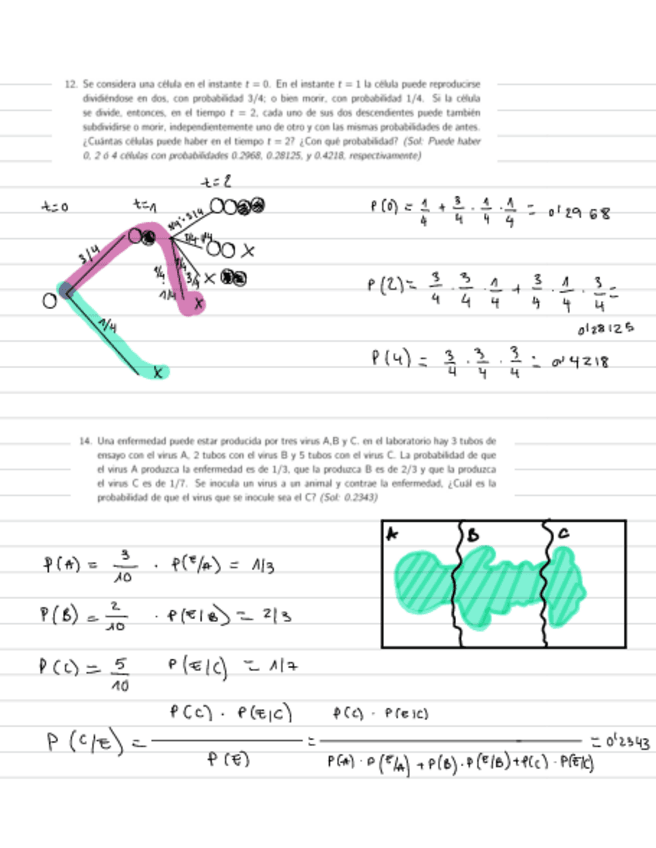 12. Se considera una célula en el instante t = 0. En el instante t = 1 la célula puede reproducirse
dividiéndose en dos, con probabilidad 3/4; o bien morir, con probabilidad 1/4. Si la célula
se divide, entonces, en el tiempo t = 2, cada uno de sus dos descendientes puede también
subdividirse o morir, independientemente uno de otro y con las mismas probabilidades de antes.
¿Cuántas células puede haber en el tiempo t = 2? ¿Con qué probabilidad? (Sol: Puede haber
0, 2 ó 4 células con probabilidades 0.2968, 0.28125, y 0.4218, respectivamente)
t=2
t=0 t=1
3/4 · 3/4
3/4 1/4 X
3/4 1/4 3/4 X
1/4 · 1/4 X
1/4 X
P(0) = 1/4 + 3/4 · 1/4 · 1/4 = 0'2968
P(2) = 3/4 · 3/4 · 1/4 + 3/4 · 1/4 · 3/4 =
0'28125
P(4) = 3/4 · 3/4 · 3/4 = 0'4218
14. Una enfermedad puede estar producida por tres virus A,B y C. en el laboratorio hay 3 tubos de
ensayo con el virus A, 2 tubos con el virus B y 5 tubos con el virus C. La probabilidad de que
el virus A produzca la enfermedad es de 1/3, que la produzca B es de 2/3 y que la produzca
el virus C es de 1/7. Se inocula un virus a un animal y contrae la enfermedad, ¿Cuál es la
probabilidad de que el virus que se inocule sea el C? (Sol: 0.2343)
A B C
P(A) = 3/10 · P(E/A) = 1/3
P(B) = 2/10 · P(E/B) = 2/3
P(C) = 5/10 P(E/C) = 1/7
P(C/E) = P(C) · P(E/C) / P(E) = P(C) · P(E/C) / P(A) · P(E/A) + P(B) · P(E/B) + P(C) · P(E/C) = 0'2343